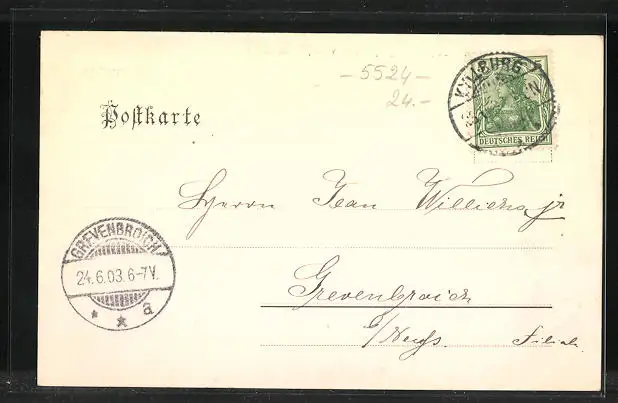 - 5524 -
24.-
KYLLBURG
5
DEUTSCHES REICH
Postkarte
Herrn Jean Williens jr
GREVENBROICH
24.6.03.6-7V.
* * a
Grevenbroich
b/Neuß